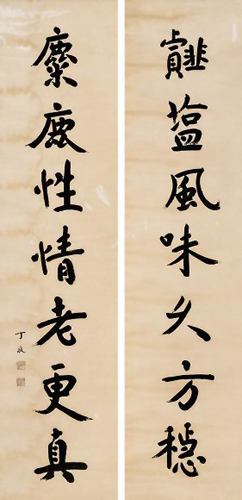 齏塩風味久方穩
麋鹿性情老更真
丁